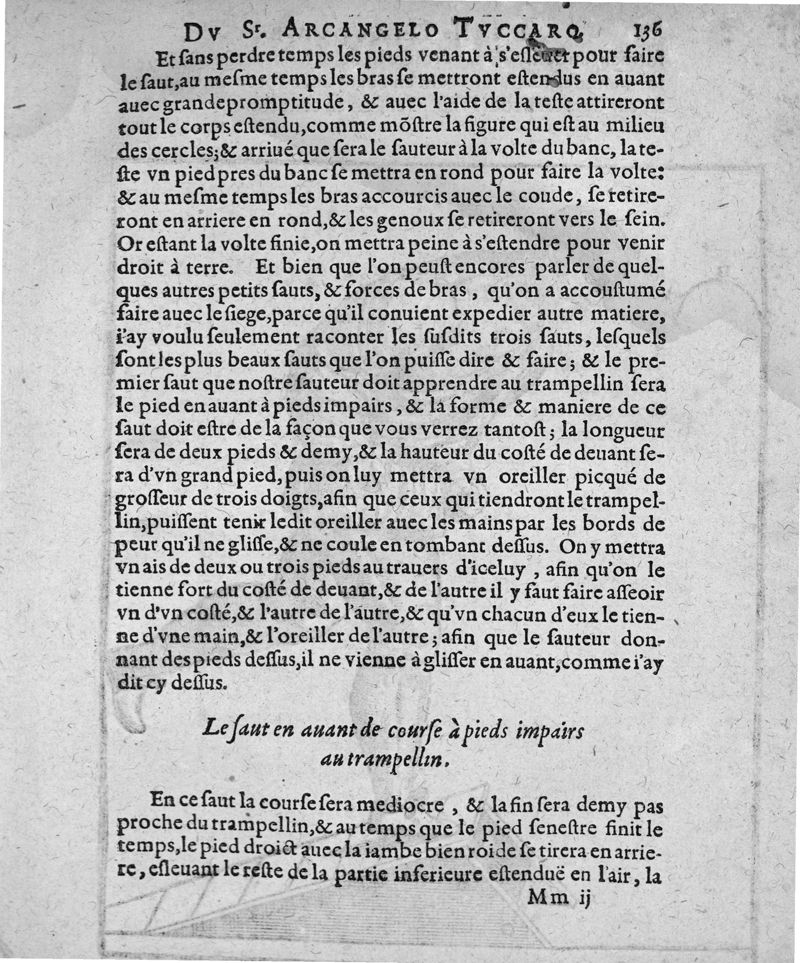 DV Sr. ARCANGELO TVCCARO, 136
Et sans perdre temps les pieds venant à s'esleuer pour faire
le saut,au mesme temps les bras se mettront estendus en auant
auec grande promptitude, & auec l'aide de la teste attireront
tout le corps estendu,comme mõstre la figure qui est au milieu
des cercles;& arriué que sera le sauteur à la volte du banc, la te-
ste vn pied pres du banc se mettra en rond pour faire la volte:
& au mesme temps les bras accourcis auec le coude, se retire-
ront en arriere en rond,& les genoux se retireront vers le sein.
Or estant la volte finie,on mettra peine à s'estendre pour venir
droit à terre. Et bien que l'on peust encores parler de quel-
ques autres petits sauts, & forces de bras, qu'on a accoustumé
faire auec le siege,parce qu'il conuient expedier autre matiere,
i'ay voulu seulement raconter les susdits trois sauts, lesquels
sont les plus beaux sauts que l'on puisse dire & faire; & le pre-
mier saut que nostre sauteur doit apprendre au trampellin sera
le pied en auant à pieds impairs, & la forme & maniere de ce
saut doit estre de la façon que vous verrez tantost; la longueur
sera de deux pieds & demy,& la hauteur du costé de deuant se-
ra d'vn grand pied, puis on luy mettra vn oreiller picqué de
grosseur de trois doigts,afin que ceux qui tiendront le trampel-
lin,puissent tenir ledit oreiller auec les mains par les bords de
peur qu'il ne glisse,& ne coule en tombant dessus. On y mettra
vn ais de deux ou trois pieds au trauers d'iceluy, afin qu'on le
tienne fort du costé de deuant,& de l'autre il y faut faire asseoir
vn d'vn costé,& l'autre de l'autre,& qu'vn chacun d'eux le tien-
ne d'vne main,& l'oreiller de l'autre; afin que le sauteur don-
nant des pieds dessus,il ne vienne à glisser en auant,comme i'ay
dit cy dessus.
Le saut en auant de course à pieds impairs
au trampellin.
En ce saut la course sera mediocre, & la fin sera demy pas
proche du trampellin,& au temps que le pied senestre finit le
temps,le pied droict auec la iambe bien roide se tirera en arrie-
re, esleuant le reste de la partie inferieure estenduë en l'air, la
Mm ij